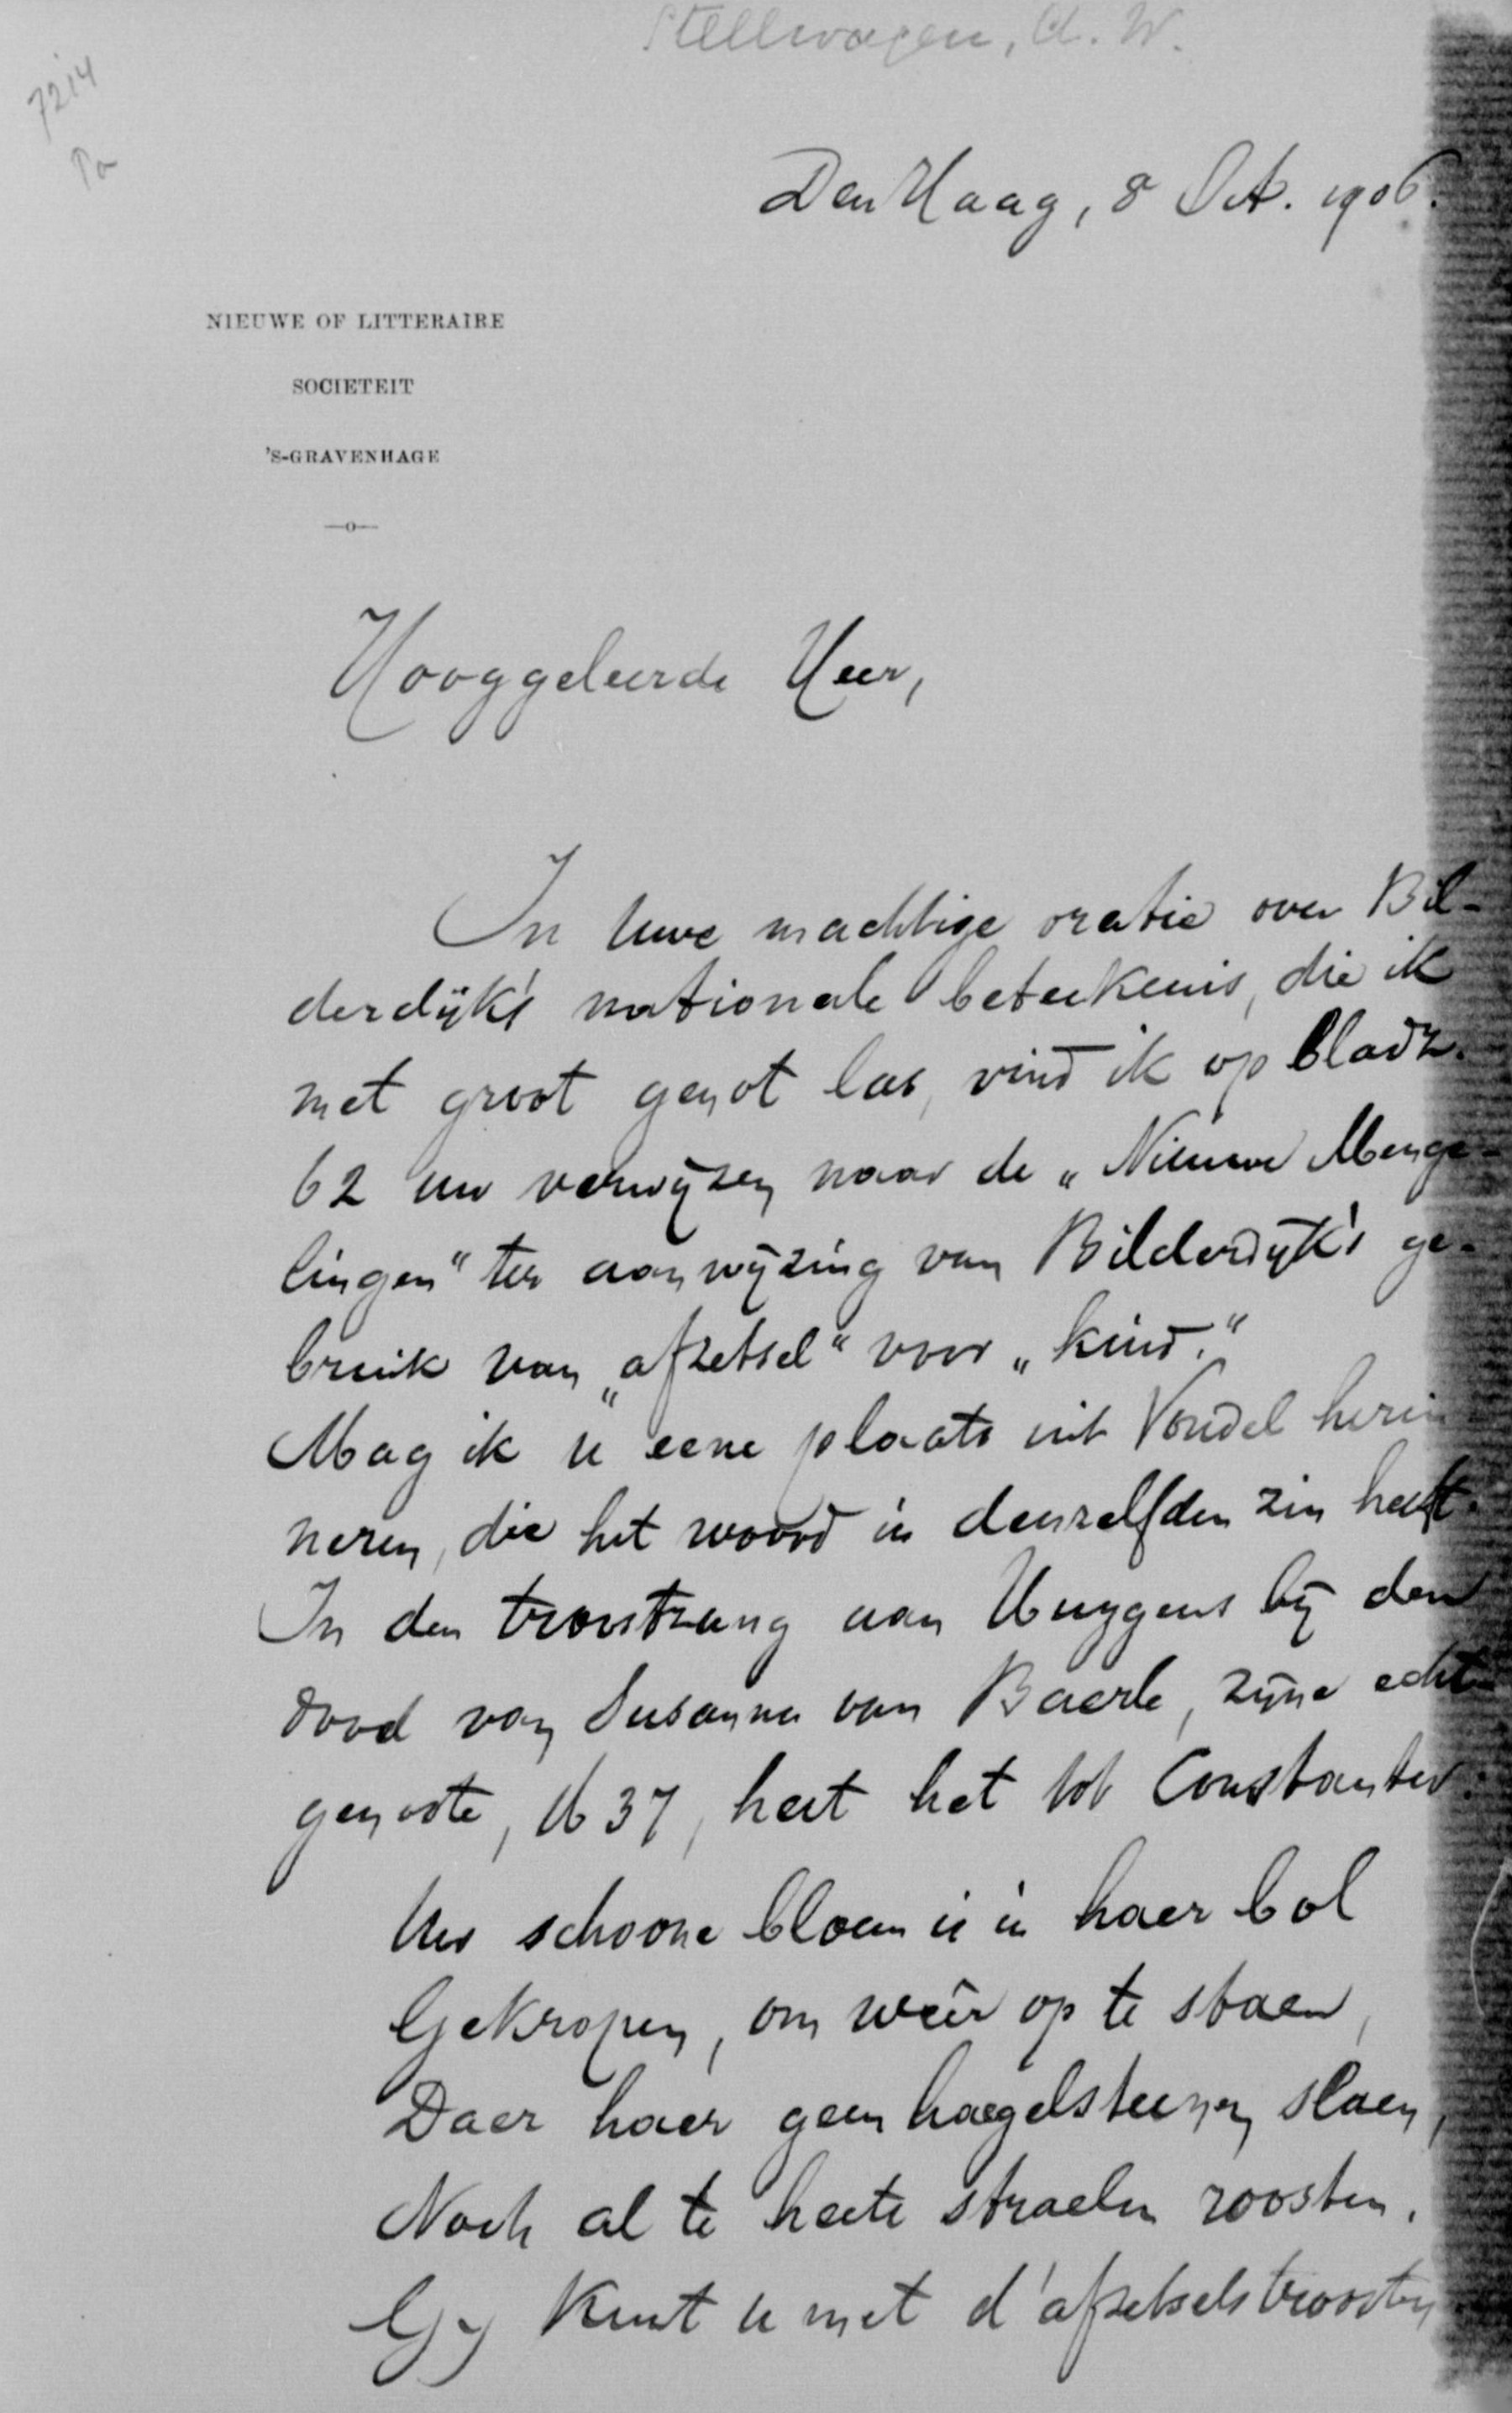 Stellwagen, A. W.
7214
Pa
Den Haag, 8 Oct. 1906.
NIEUWE OF LITTERAIRE
SOCIETEIT
'S-GRAVENHAGE
—o—
Hooggeleerde Heer,
In Uwe machtige oratie over Bil-
derdijk's nationale beteekenis, die ik
met groot genot las, vind ik op bladz.
62 uw verwijzen naar de „Nieuwe Menge-
lingen" ter aanwijzing van Bilderdijk's ge-
bruik van „afzetsel" voor „kind."
Mag ik u eene plaats uit Vondel herin
neren, die het woord in denzelfden zin heeft.
In den troostzang aan Huygens bij den
dood van Susanna van Baerle, zijne echt-
genoote, 1637, heet het tot Constanter:
Uw schoone bloem is in haer bol
Gekropen, om weêr op te staen,
Daer haer geen haegelsteenen slaen,
Noch al te heete straelen roosten.
Gy kunt u met d'afzetsels troosten